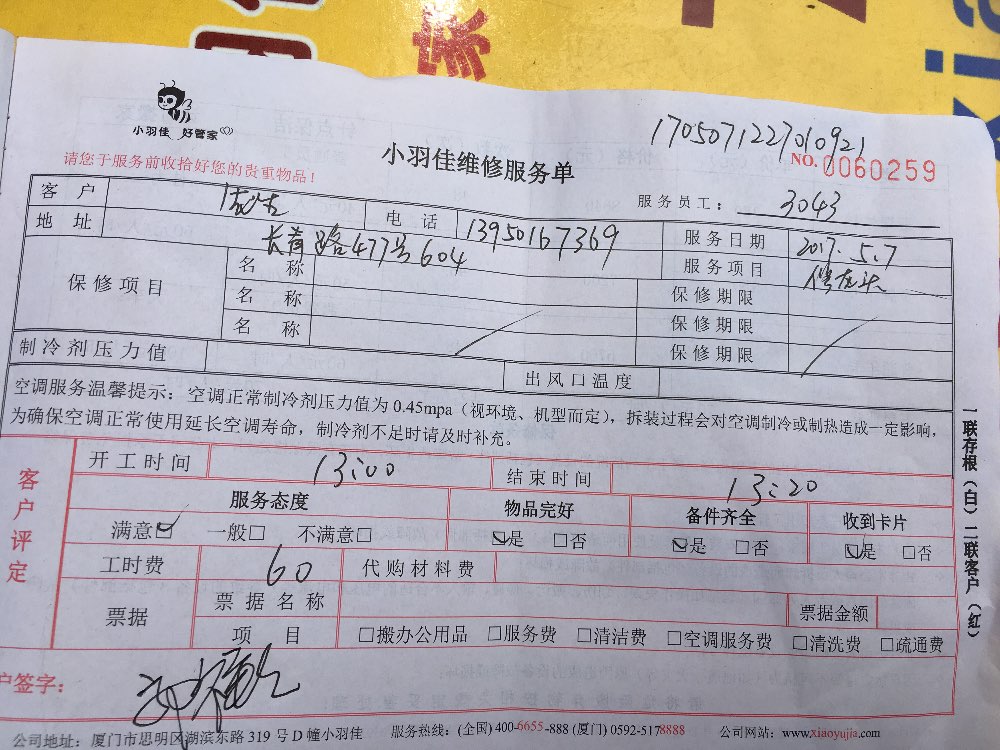 小羽佳 好管家
170507122701０921
请您于服务前收拾好您的贵重物品！
小羽佳维修服务单
NO. 0060259
服务员工： 3043
客户 电话 13950167369 服务日期 2017.5.7
地址 长青路477号604 服务项目 修龙头
保修项目 名称 保修期限
名称 保修期限
名称 保修期限
制冷剂压力值 出风口温度
空调服务温馨提示：空调正常制冷剂压力值为0.45mpa（视环境、机型而定），拆装过程会对空调制冷或制热造成一定影响，
为确保空调正常使用延长空调寿命，制冷剂不足时请及时补充。
客户评定
开工时间 13:00 结束时间 13:20
服务态度 物品完好 备件齐全 收到卡片
满意☑ 一般□ 不满意□ ☑是 □否 ☑是 □否 ☑是 □否
工时费 60 代购材料费
票据 票据名称 票据金额
项目 □搬办公用品 □服务费 □清洁费 □空调服务费 □清洗费 □疏通费
户签字：
公司地址：厦门市思明区湖滨东路319号D幢小羽佳 服务热线：(全国) 400-6655-888 (厦门) 0592-5178888 公司网站：www.xiaoyujia.com
一联存根（白）二联客户（红）